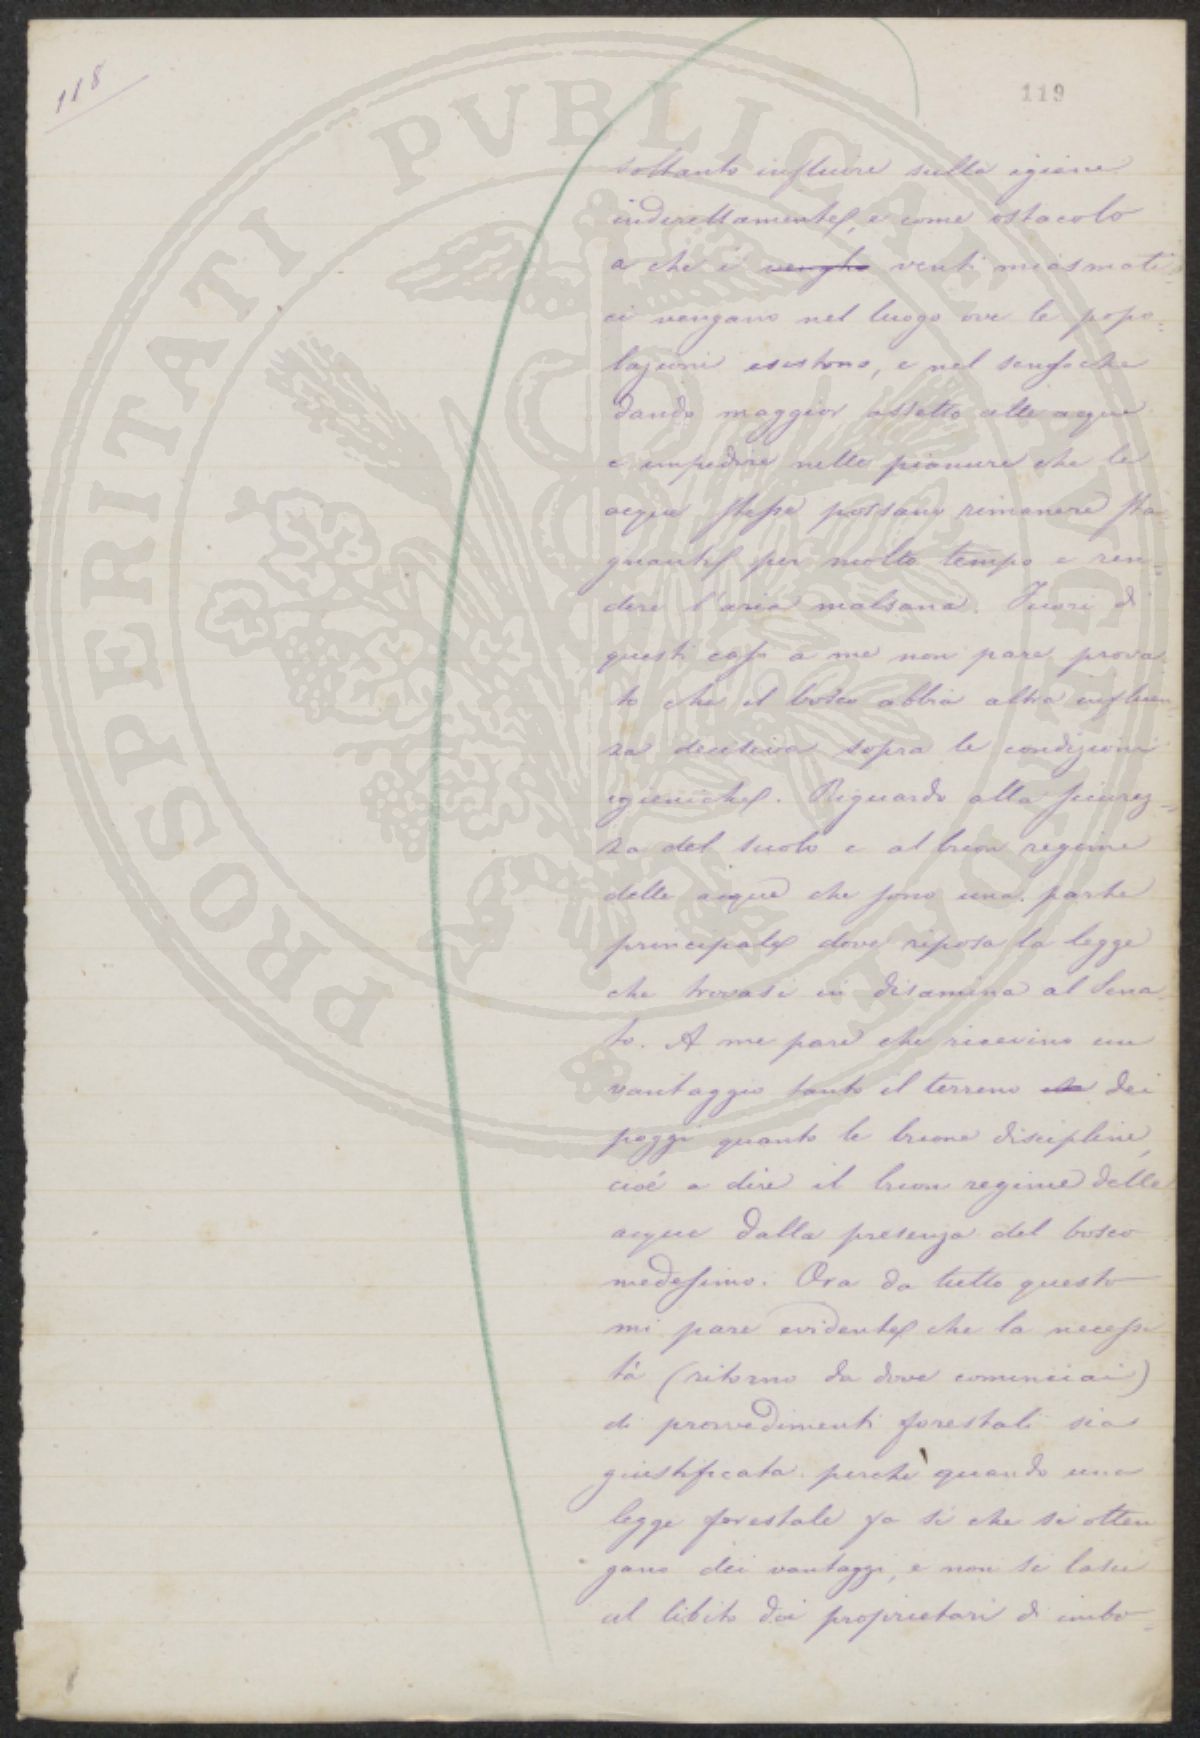 118
119
soltanto influire sulla igiene
indirettamente, e come ostacolo
a che i vengho venti miasmati
ci vengano nel luogo ove le popo=
lazioni esistono, e nel senso che
dando maggior assetto alle acque
e impedire nelle pianure che le
acque stesse possano rimanere sta
gnanti per molto tempo e ren=
dere l'aria malsana. Fuori di
questi casi a me non pare prova
to che il bosco abbia altra influen=
za decisiva sopra le condizioni
igieniche. Riguardo alla sicurez=
za del suolo e al buon regime
delle acque che sono una parte
principale dove riposa la legge
che trovasi in disamina al Sena
to. A me pare che ricevino un
vantaggio tanto il terreno dei
poggi quanto le buone discipline,
cioé a dire il buon regime delle
acque dalla presenza del bosco
medesimo. Ora da tutto questo
mi pare evidente che la necessi
tà (ritorno da dove cominciai)
di provvedimenti forestali sia
giustificata perchè quando una
legge forestale fa si che si otten
gano dei vantaggi, e non si lasci
al libito dei proprietari di imbo=
PROSPERITATI PVBLICAE AVGENDAE